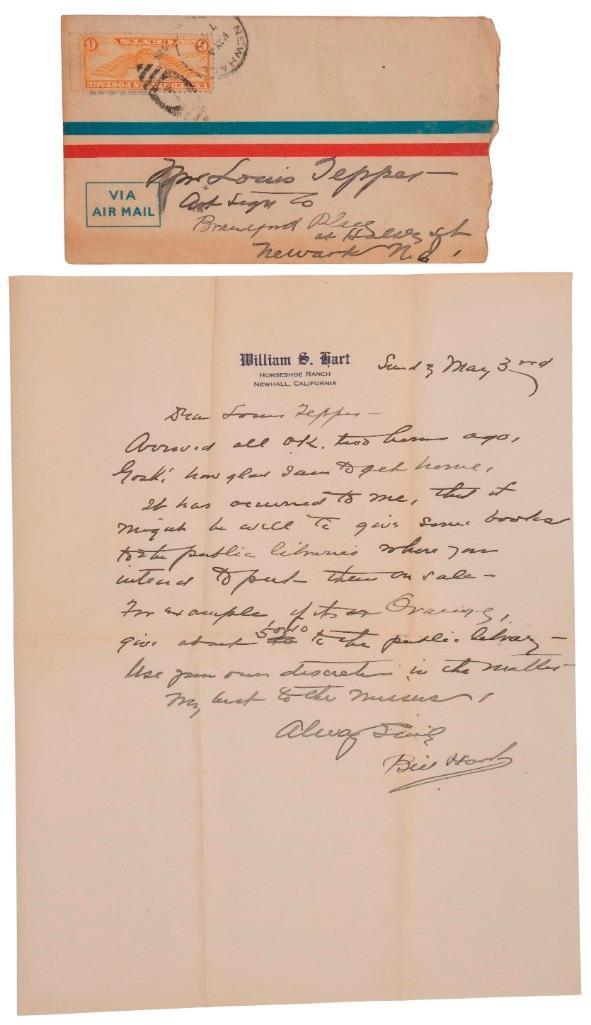 NEWHA
VIA
AIR MAIL
Mr Louis Tepper
Art Sign Co
Branford Place
at Halsey st
Newark N.J.
William S. Hart
HORSESHOE RANCH
NEWHALL, CALIFORNIA
Sunday May 3rd
Dear Louis Tepper —
Arrived all OK. two hours ago,
Gosh! how glad I am to get home,
It has occurred to me, that it
might be well to give some books
to the public libraries where you
intend to put them on sale —
For example if its in Orange,
give about 5 or 10 to the public library —
Use your own discretion in the matter
My best to the missus!
Always Sincly
Bill Hart